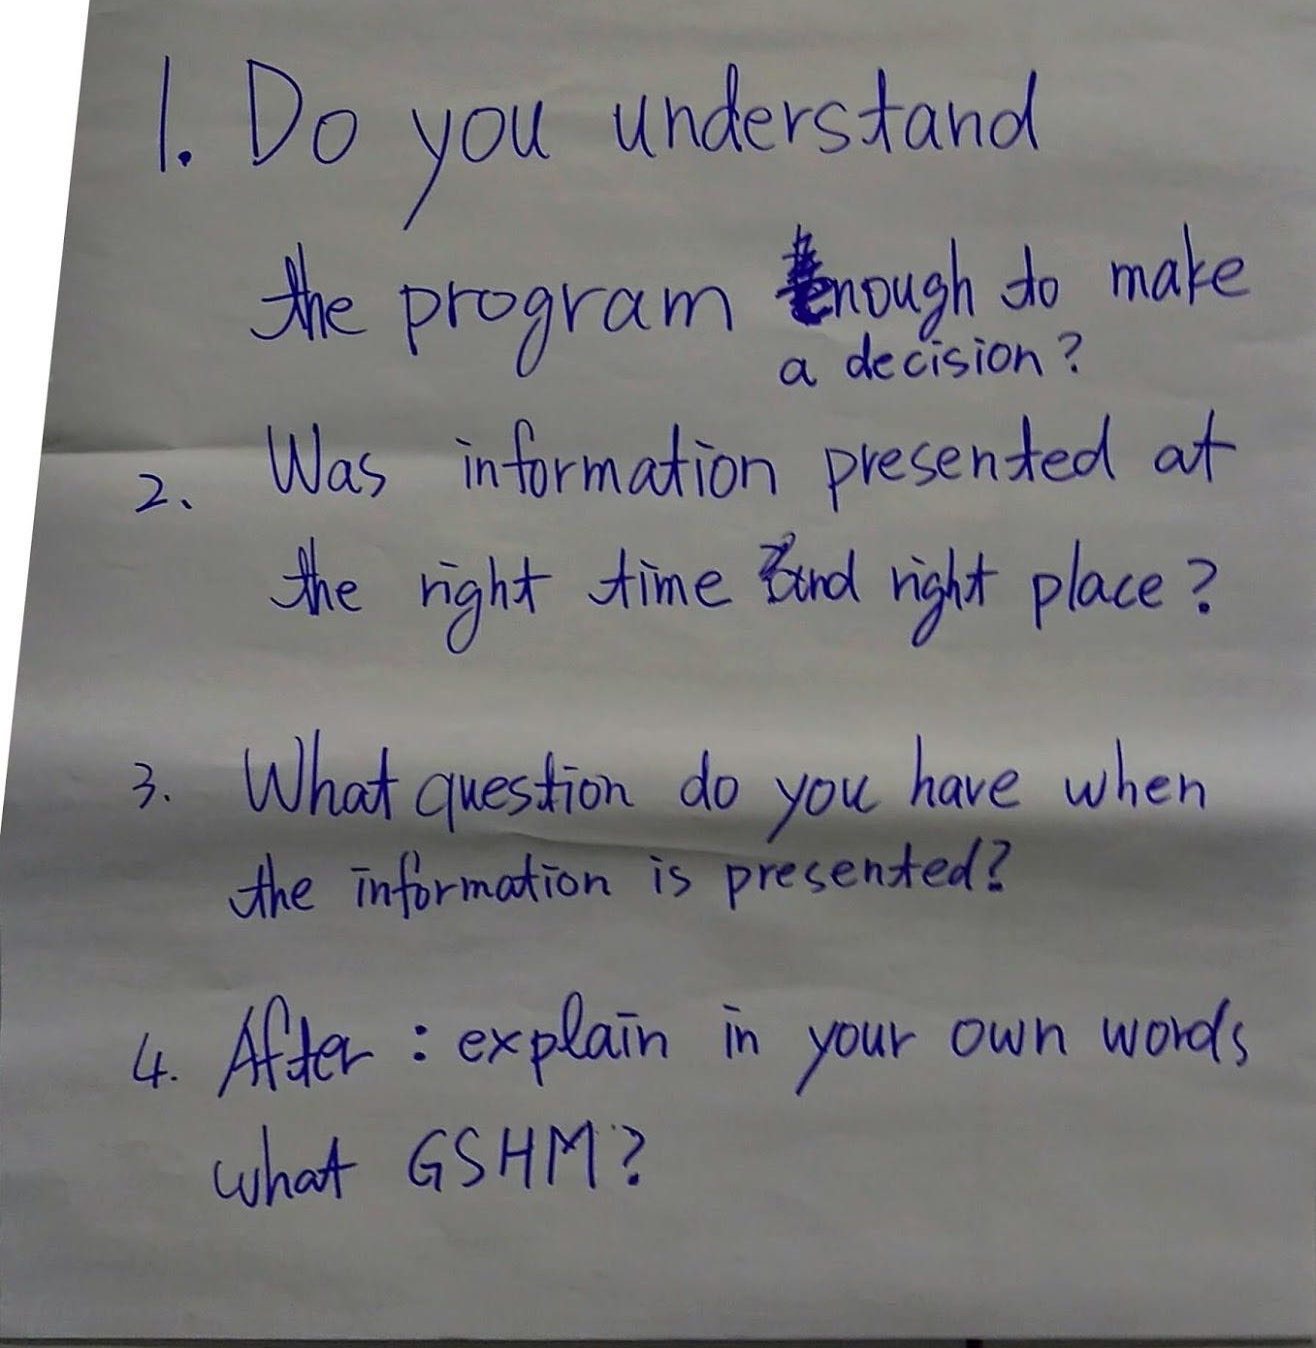 1. Do you understand
the program enough to make
a decision?
2. Was information presented at
the right time and right place?
3. What question do you have when
the information is presented?
4. After : explain in your own words
what GSHM?